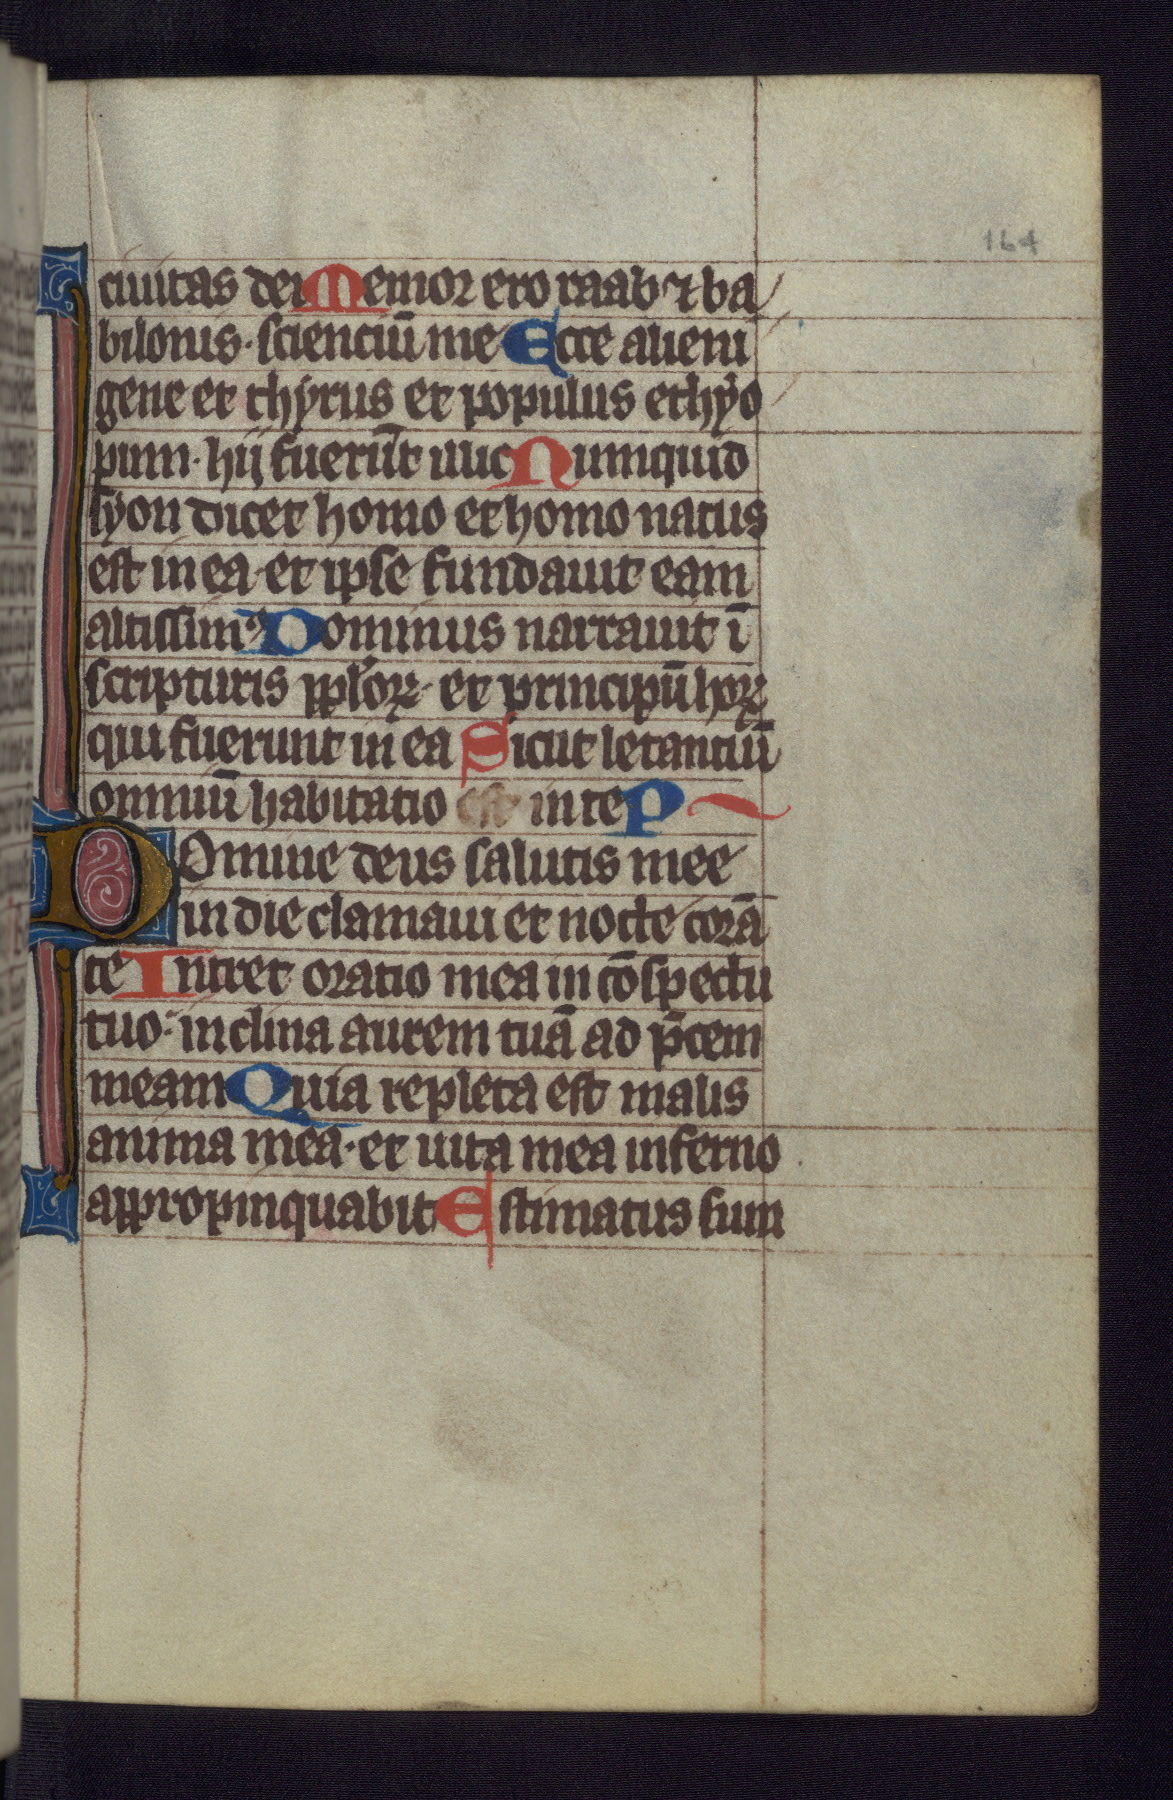 164
ciuitas dei Memor ero raab ⁊ ba
bilonis· scienciū me Ecce alieni
gene et thyrus et populus ethyo
pum· hij fuerūt illic Numquid
syon dicet homo et homo natus
est in ea· et ipse fundauit eam
altissim᷒ Dominus narrauit ī
scripturis ppl'oꝝ· et principū hoꝝ
qui fuerunt in ea Sicut letanciū
omniū habitatio est in te P
Domine deus salutis mee
in die clamaui et nocte corā
te Intret oratio mea in cōspectu
tuo· inclina aurem tuā ad p̄cem
meam Quia repleta est malis
anima mea· et uita mea inferno
appropinquabit Estimatus sum